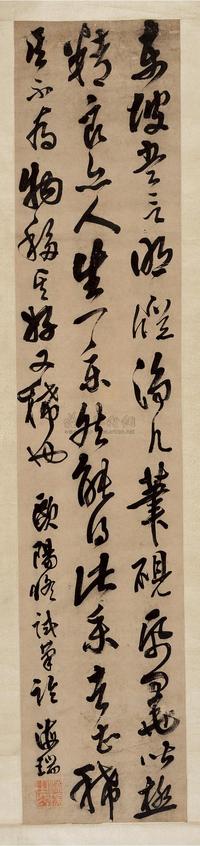 東坡嘗言明窓淨几筆硯紙墨皆極
精良亦人生一樂然能得此樂者甚稀
其不為物移其好又稀也 歐陽修試筆 海瑞